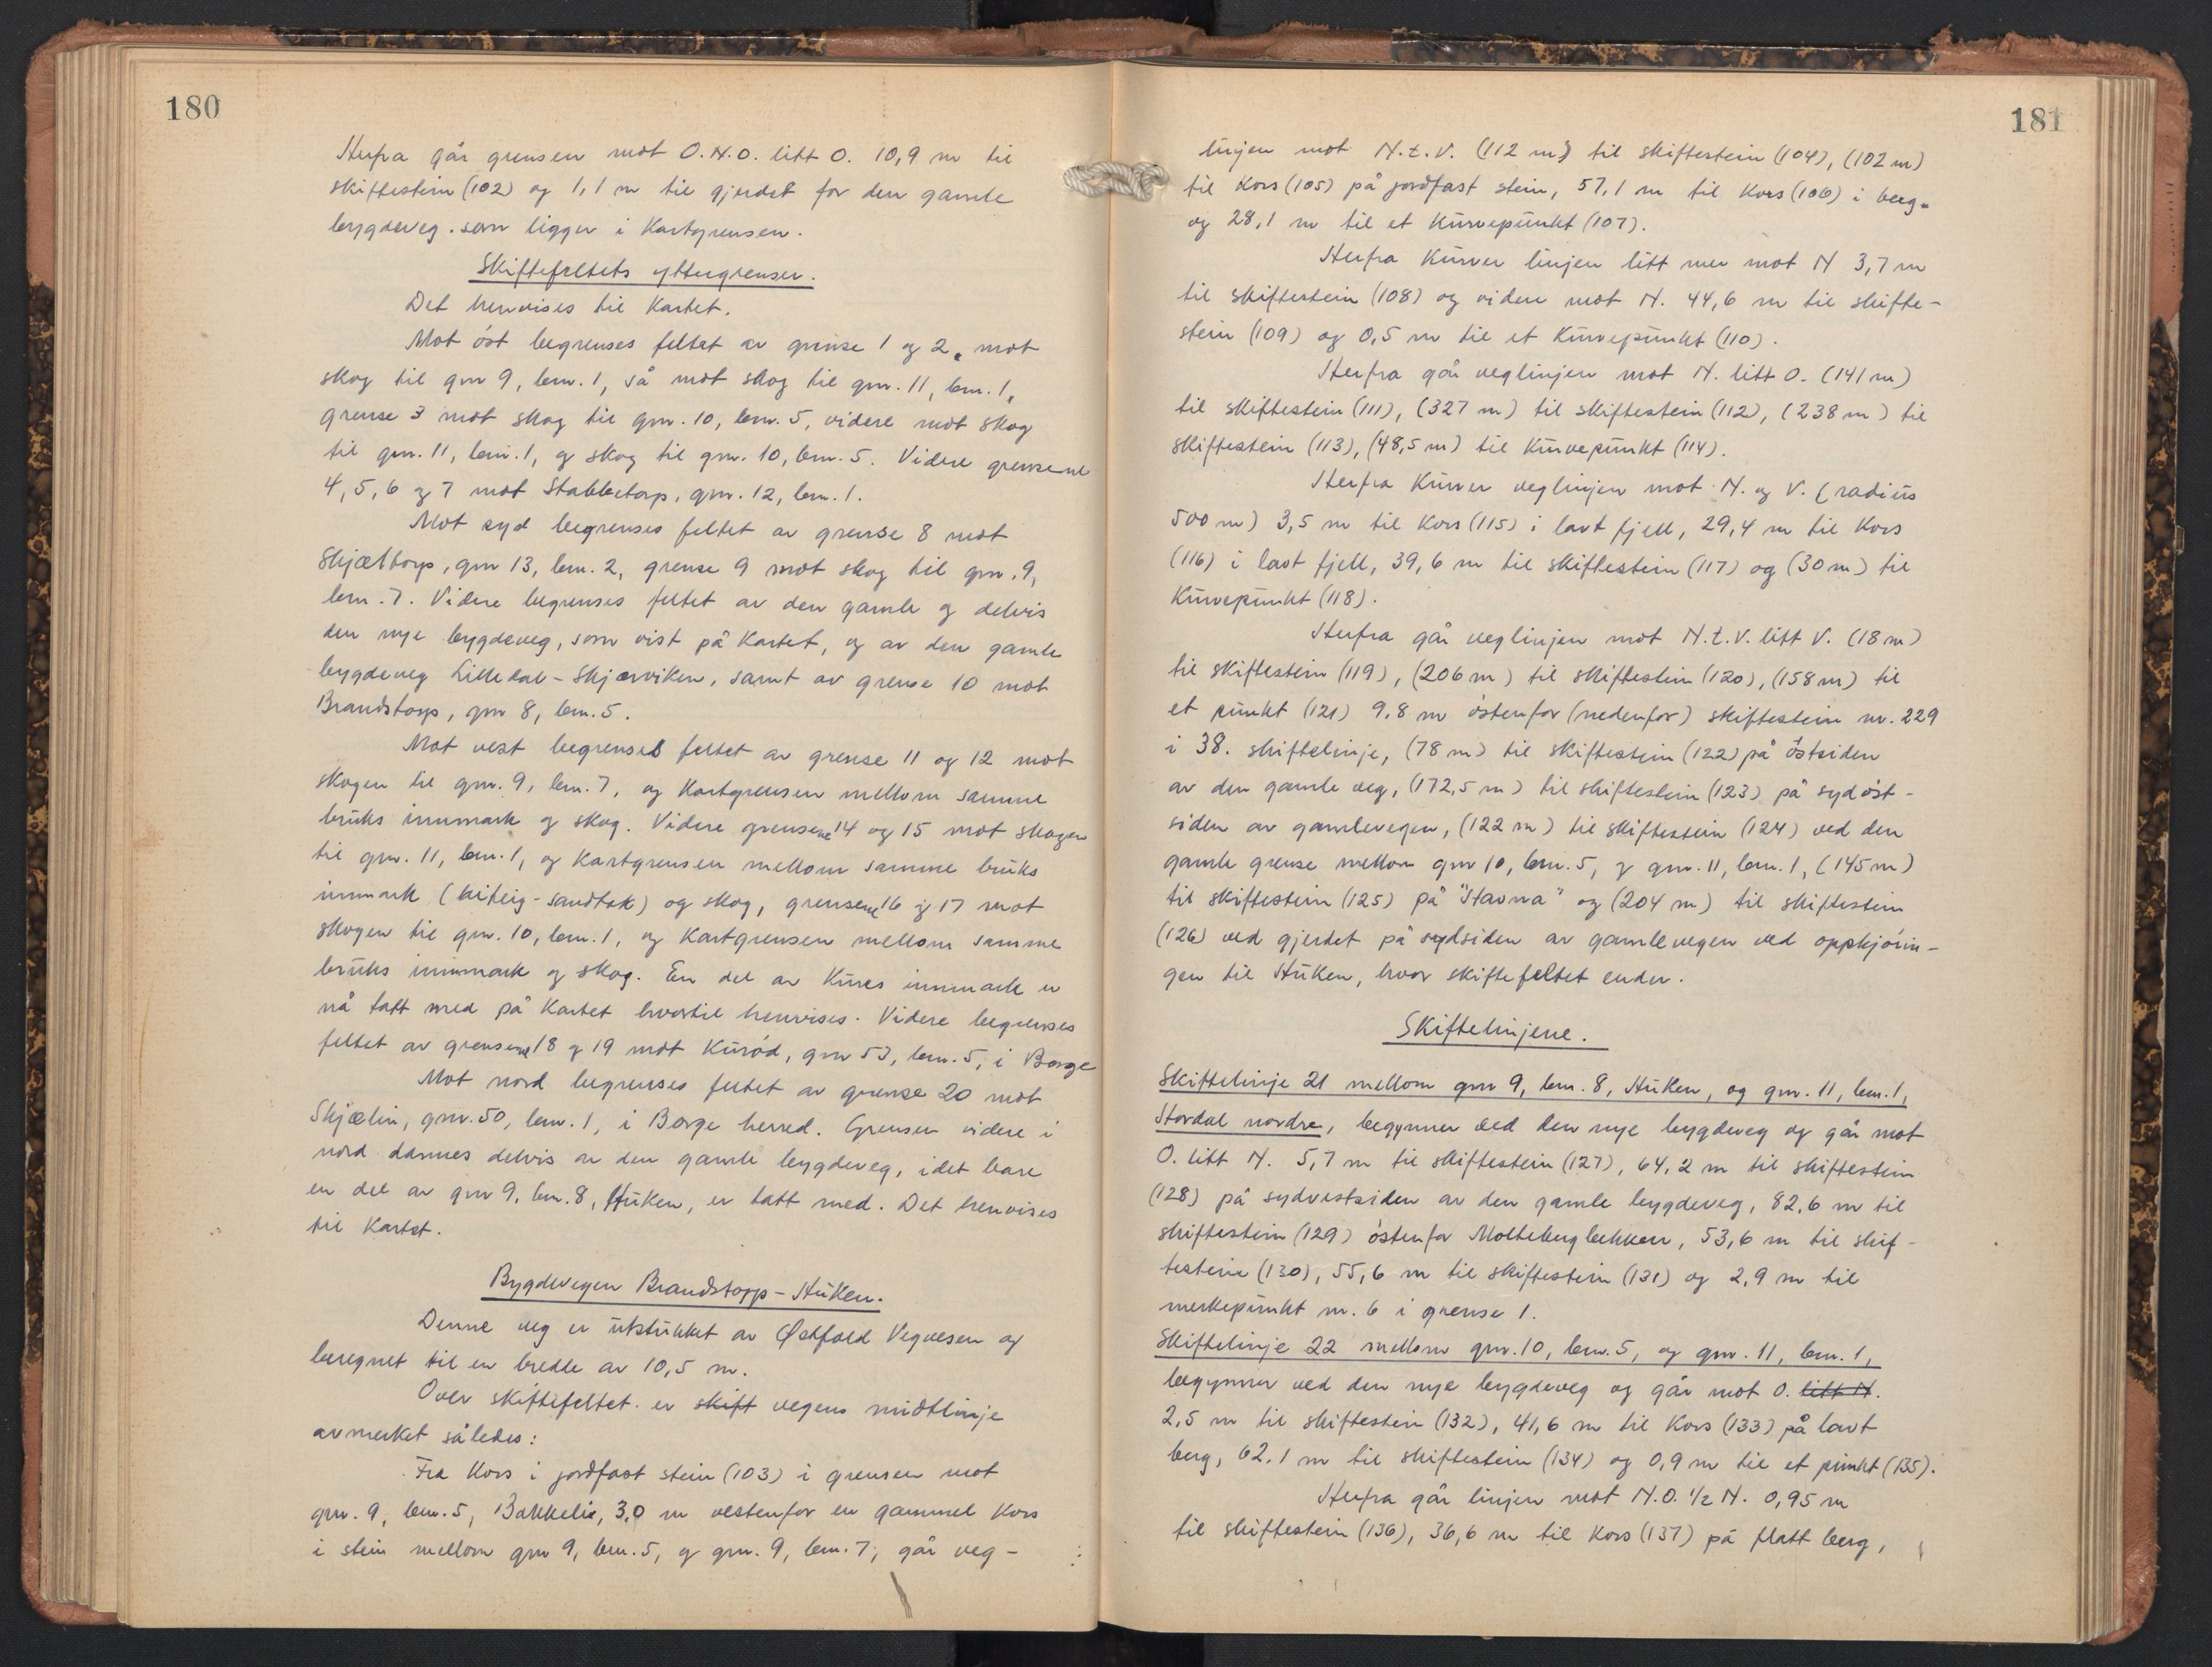 180
Herfra går grensen mot O.N.O. litt O. 10,9 m til
skiftestein (102) og 1,1 m til gjerdet for den gamle
bygdeveg. som ligger i Kartgrensen.
Skiftefeltets yttergrenser.
Det henvises til Kartet.
Mot öst begrenses feltet av grense 1 og 2, mot
skog til gnr 9, bnr. 1, så mot skog til gnr. 11, bnr. 1,
grense 3 mot skog til gnr. 10, bnr. 5, videre mot skog
til gnr. 11, bnr. 1, og skog til gnr. 10, bnr. 5. Videre grensene
4, 5, 6 og 7 mot Stabbetorp, gnr. 12, bnr. 1.
Mot syd begrenses feltet av grense 8 mot
Skjæltorp, gnr 13, bnr. 2, grense 9 mot skog til gnr. 9,
bnr. 7. Videre begrenses feltet av den gamle og delvis
den nye bygdeveg, som vist på Kartet, og av den gamle
bygdeveg Lilledal - Skjærviken, samt av grense 10 mot
Brandstorp, gnr 8, bnr. 5.
Mot vest begrenses feltet av grense 11 og 12 mot
skogen til gnr. 9, bnr. 7, og Kartgrensen mellom samme
bruks innmark og skog. Videre grensene 14 og 15 mot skogen
til gnr. 11, bnr. 1, og Kartgrensen mellom samme bruks
innmark (biteig - sandtak) og skog, grensene 16 og 17 mot
skogen til gnr. 10, bnr. 1, og Kartgrensen mellom samme
bruks innmark og skog. En del av Kures innmark er
nå tatt med på Kartet hvortil henvises. Videre begrenses
feltet av grensene 18 og 19 mot Kuröd, gnr 53, bnr. 5, i Borge
Mot nord begrenses feltet av grense 20 mot
Skjælin, gnr. 50, bnr. 1, i Borge herred. Grensen videre i
nord dannes delvis av den gamle bygdeveg, idet bare
en del av gnr 9, bnr. 8, Huken, er tatt med. Det henvises
til Kartet.
Bygdevegen Brandstorp - Huken.
Denne veg er utstukket av Østfold Vegvesen og
beregnet til en bredde av 10,5 m.
Over skiftefeltet er skift vegens midtlinje
avmerket således:
Fra Kors i jordfast stein (103) i grensen mot
gnr. 9, bnr. 5, Bakkelie, 3,0 m vestenfor en gammel Kors
i stein mellom gnr 9, bnr. 5, og gnr. 9, bnr. 7, går veg-
181
linjen mot N.t.V. (112 m) til skiftestein (104), (102 m)
til Kors (105) på jordfast stein, 57,1 m til Kors (106) i berg
og 28,1 m til et Kurvepunkt (107).
Herfra Kurver linjen litt mer mot N 3,7 m
til skiftestein (108) og videre mot N. 44,6 m til skifte-
stein (109) og 0,5 m til et Kurvepunkt (110).
Herfra går veglinjen mot N. litt O. (141 m)
til skiftestein (111), (327 m) til skiftestein (112), (238 m) til
skiftestein (113), (48,5 m) til Kurvepunkt (114).
Herfra Kurver veglinjen mot N. og V. (radius
500 m) 3,5 m til Kors (115) i lavt fjell, 29,4 m til Kors
(116) i lavt fjell, 39,6 m til skiftestein (117) og (30 m) til
Kurvepunkt (118).
Herfra går veglinjen mot N.t.V. litt V. (18 m)
til skiftestein (119), (206 m) til skiftestein (120), (158 m) til
et punkt (121) 9,8 m östenfor (nedenfor) skiftestein nr. 229
i 38. skiftelinje, (78 m) til skiftestein (122) på östsiden
av den gamle veg, (172,5 m) til skiftestein (123) på sydöst-
siden av gamlevegen, (122 m) til skiftestein (124) ved den
gamle grense mellom gnr 10, bnr. 5, og gnr. 11, bnr. 1, (145 m)
til skiftestein (125) på "Stavna" og (204 m) til skiftestein
(126) ved gjerdet på sydsiden av gamlevegen ved oppkjörin-
gen til Huken, hvor skiftefeltet ender.
Skiftelinjene.
Skiftelinje 21 mellom gnr 9, bnr. 8, Huken, og gnr. 11, bnr. 1,
Stordal nordre, begynner ved den nye bygdeveg og går mot
O. litt N. 5,7 m til skiftestein (127), 64,2 m til skiftestein
(128) på sydvestsiden av den gamle bygdeveg, 82,6 m til
skiftestein (129) östenfor Molteberg bekken, 53,6 m til skif-
testein (130), 55,6 m til skiftestein (131) og 2,9 m til
merkepunkt nr. 6 i grense 1.
Skiftelinje 22 mellom gnr. 10, bnr. 5, og gnr. 11, bnr. 1,
begynner ved den nye bygdeveg og går mot O. litt N.
2,5 m til skiftestein (132), 41,6 m til Kors (133) på lavt
berg, 62,1 m til skiftestein (134) og 0,9 m til et punkt (135).
Herfra går linjen mot N.O. 1/2 N. 0,95 m
til skiftestein (136), 36,6 m til Kors (137) på flatt berg,